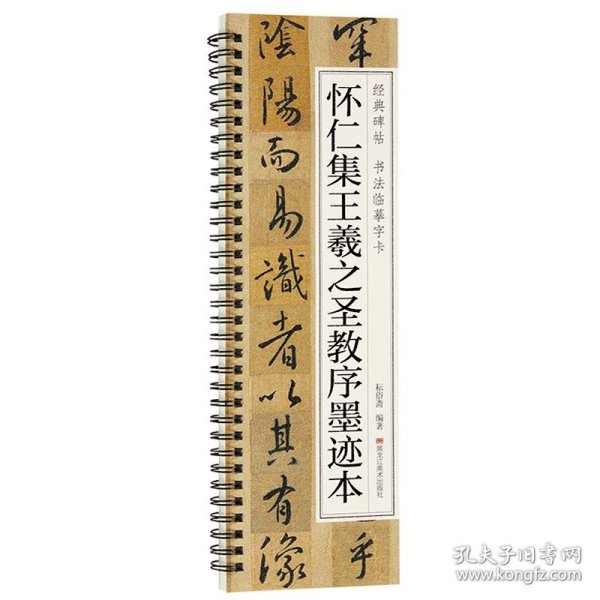 罕
乎
陰陽而易識者以其有像
经典碑帖 书法临摹字卡
怀仁集王羲之圣教序墨迹本
耘俗斋 编著
黑龙江美术出版社
孔夫子旧书网
www.kongfz.com